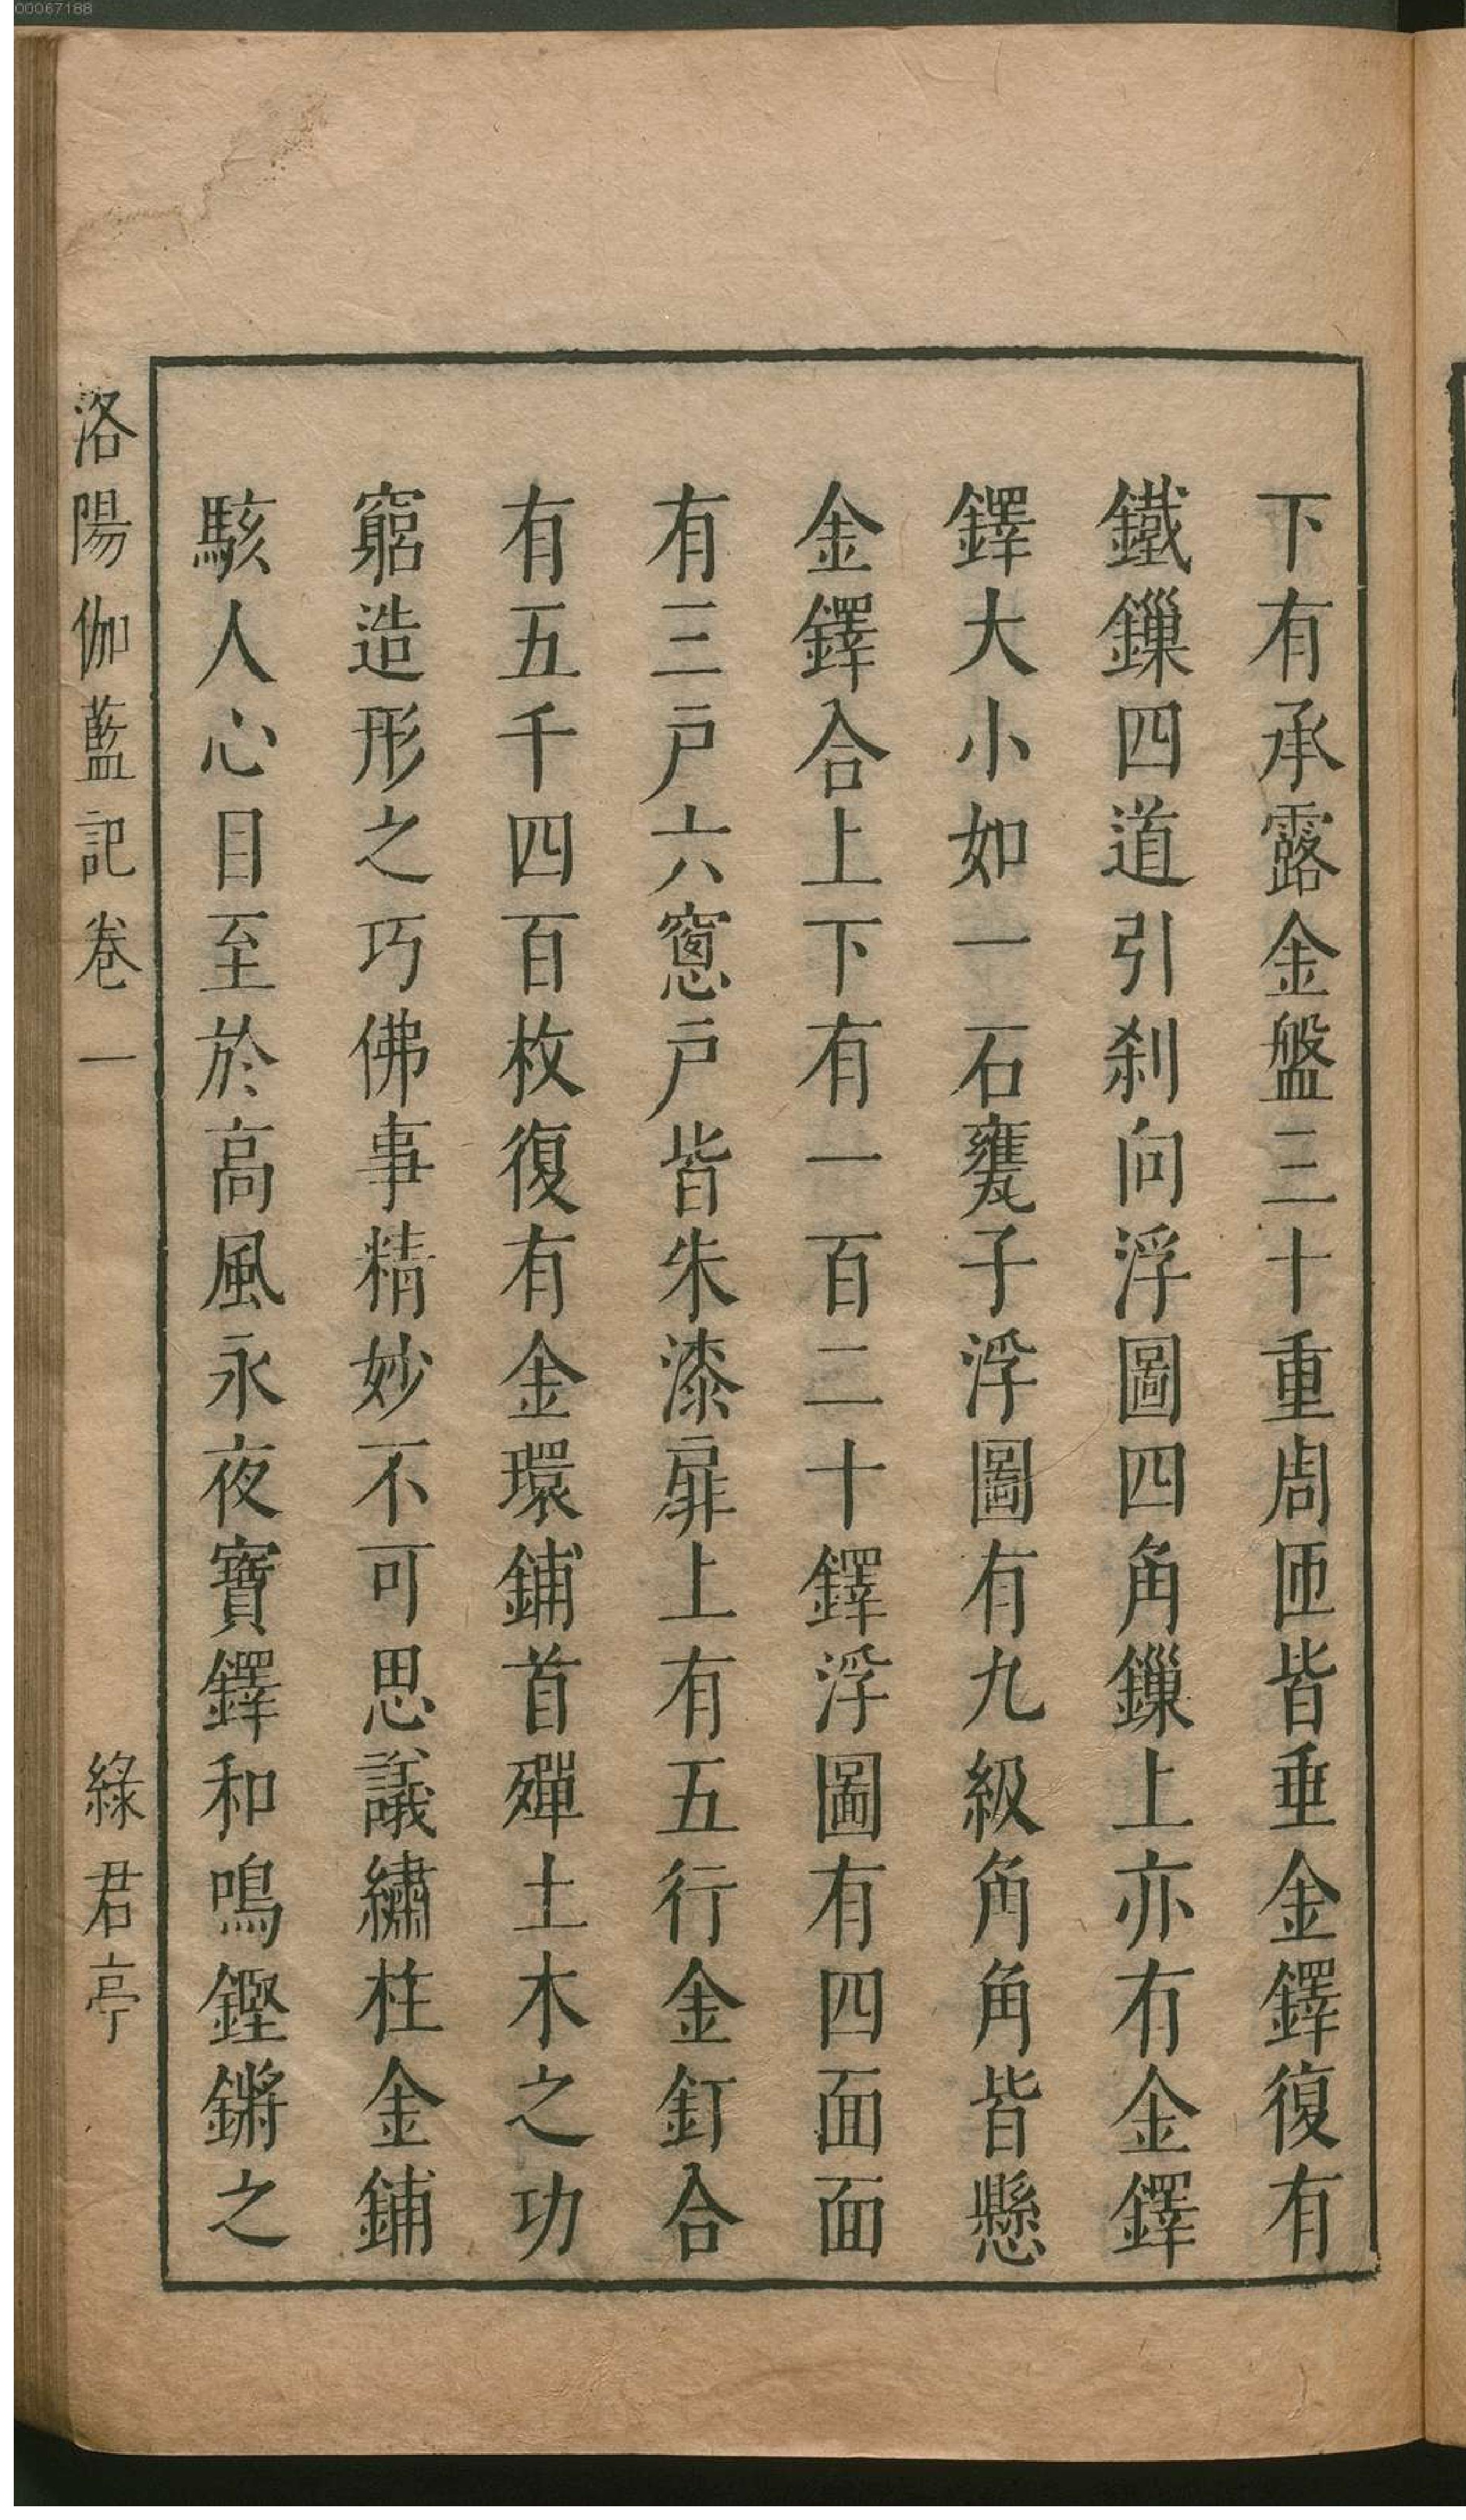 00067188
下有承露金盤三十重周匝皆垂金鐸復有
鐵鏁四道引刹向浮圖四角鏁上亦有金鐸
鐸大小如一石甕子浮圖有九級角角皆懸
金鐸合上下有一百二十鐸浮圖有四面面
有三戸六窻戸皆朱漆扉上有五行金釘合
有五千四百枚復有金環鋪首殫土木之功
窮造形之巧佛事精妙不可思議繡柱金鋪
駭人心目至於高風永夜寶鐸和鳴鏗鏘之
洛陽伽藍記卷一
綠君亭